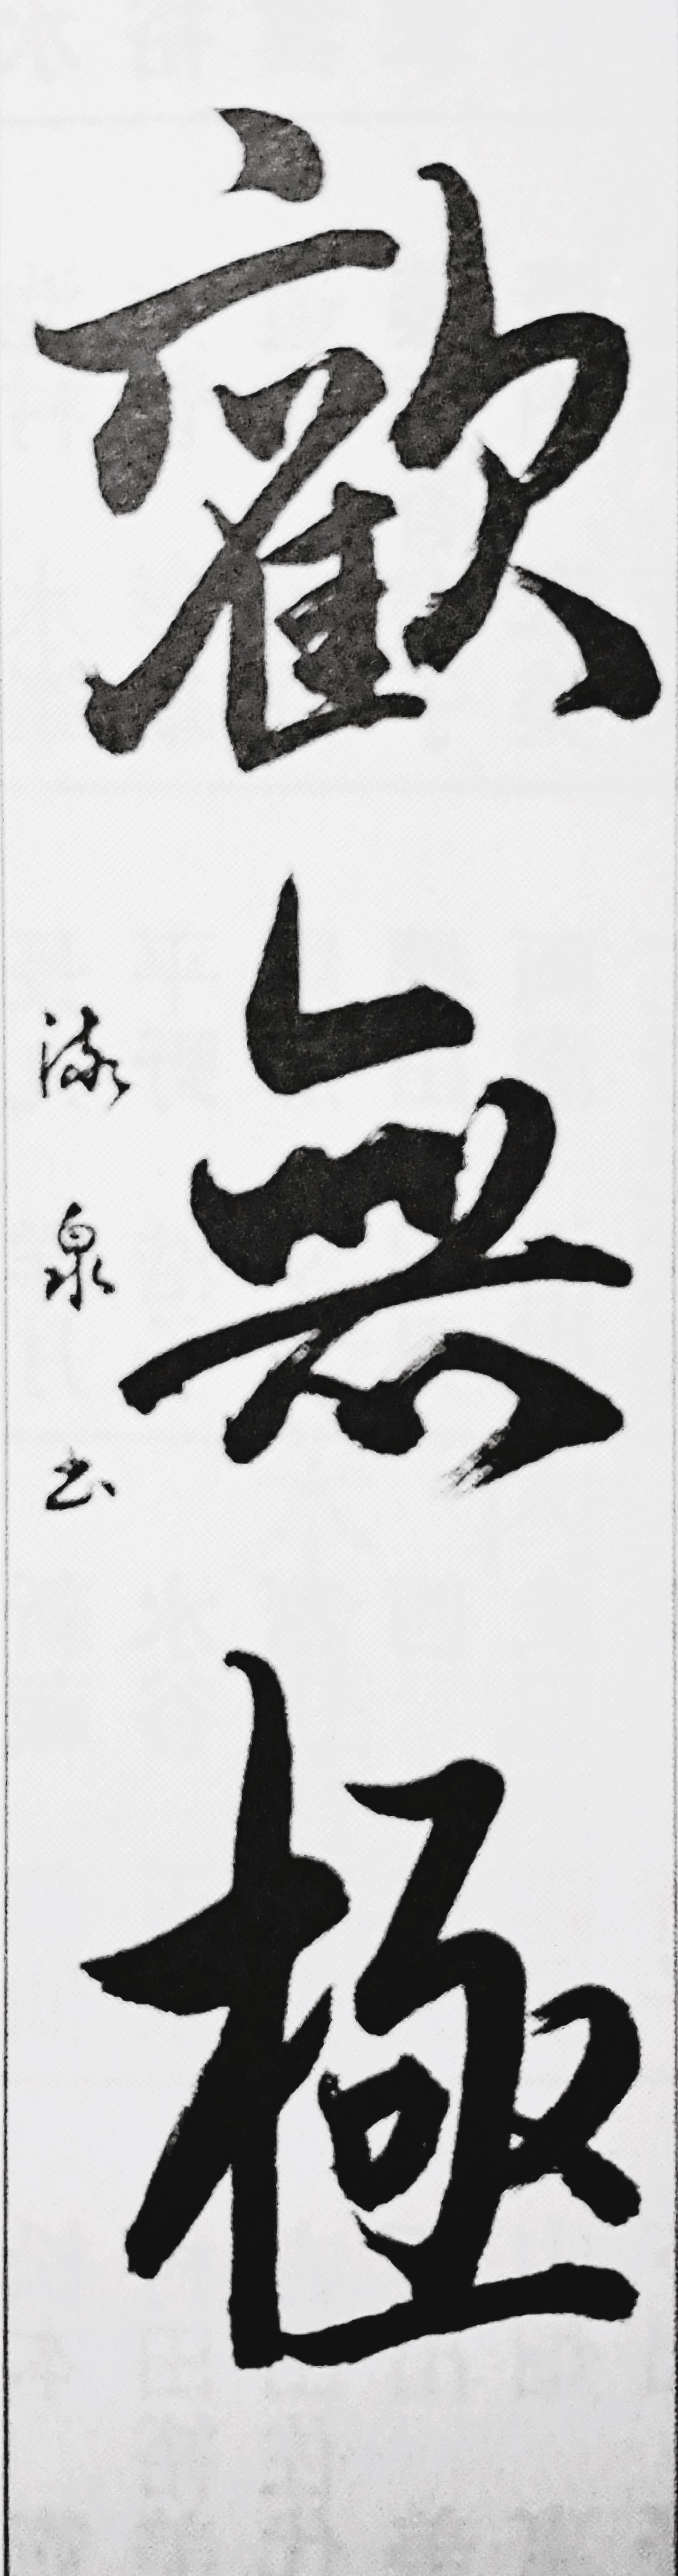 歡無極
漱泉书